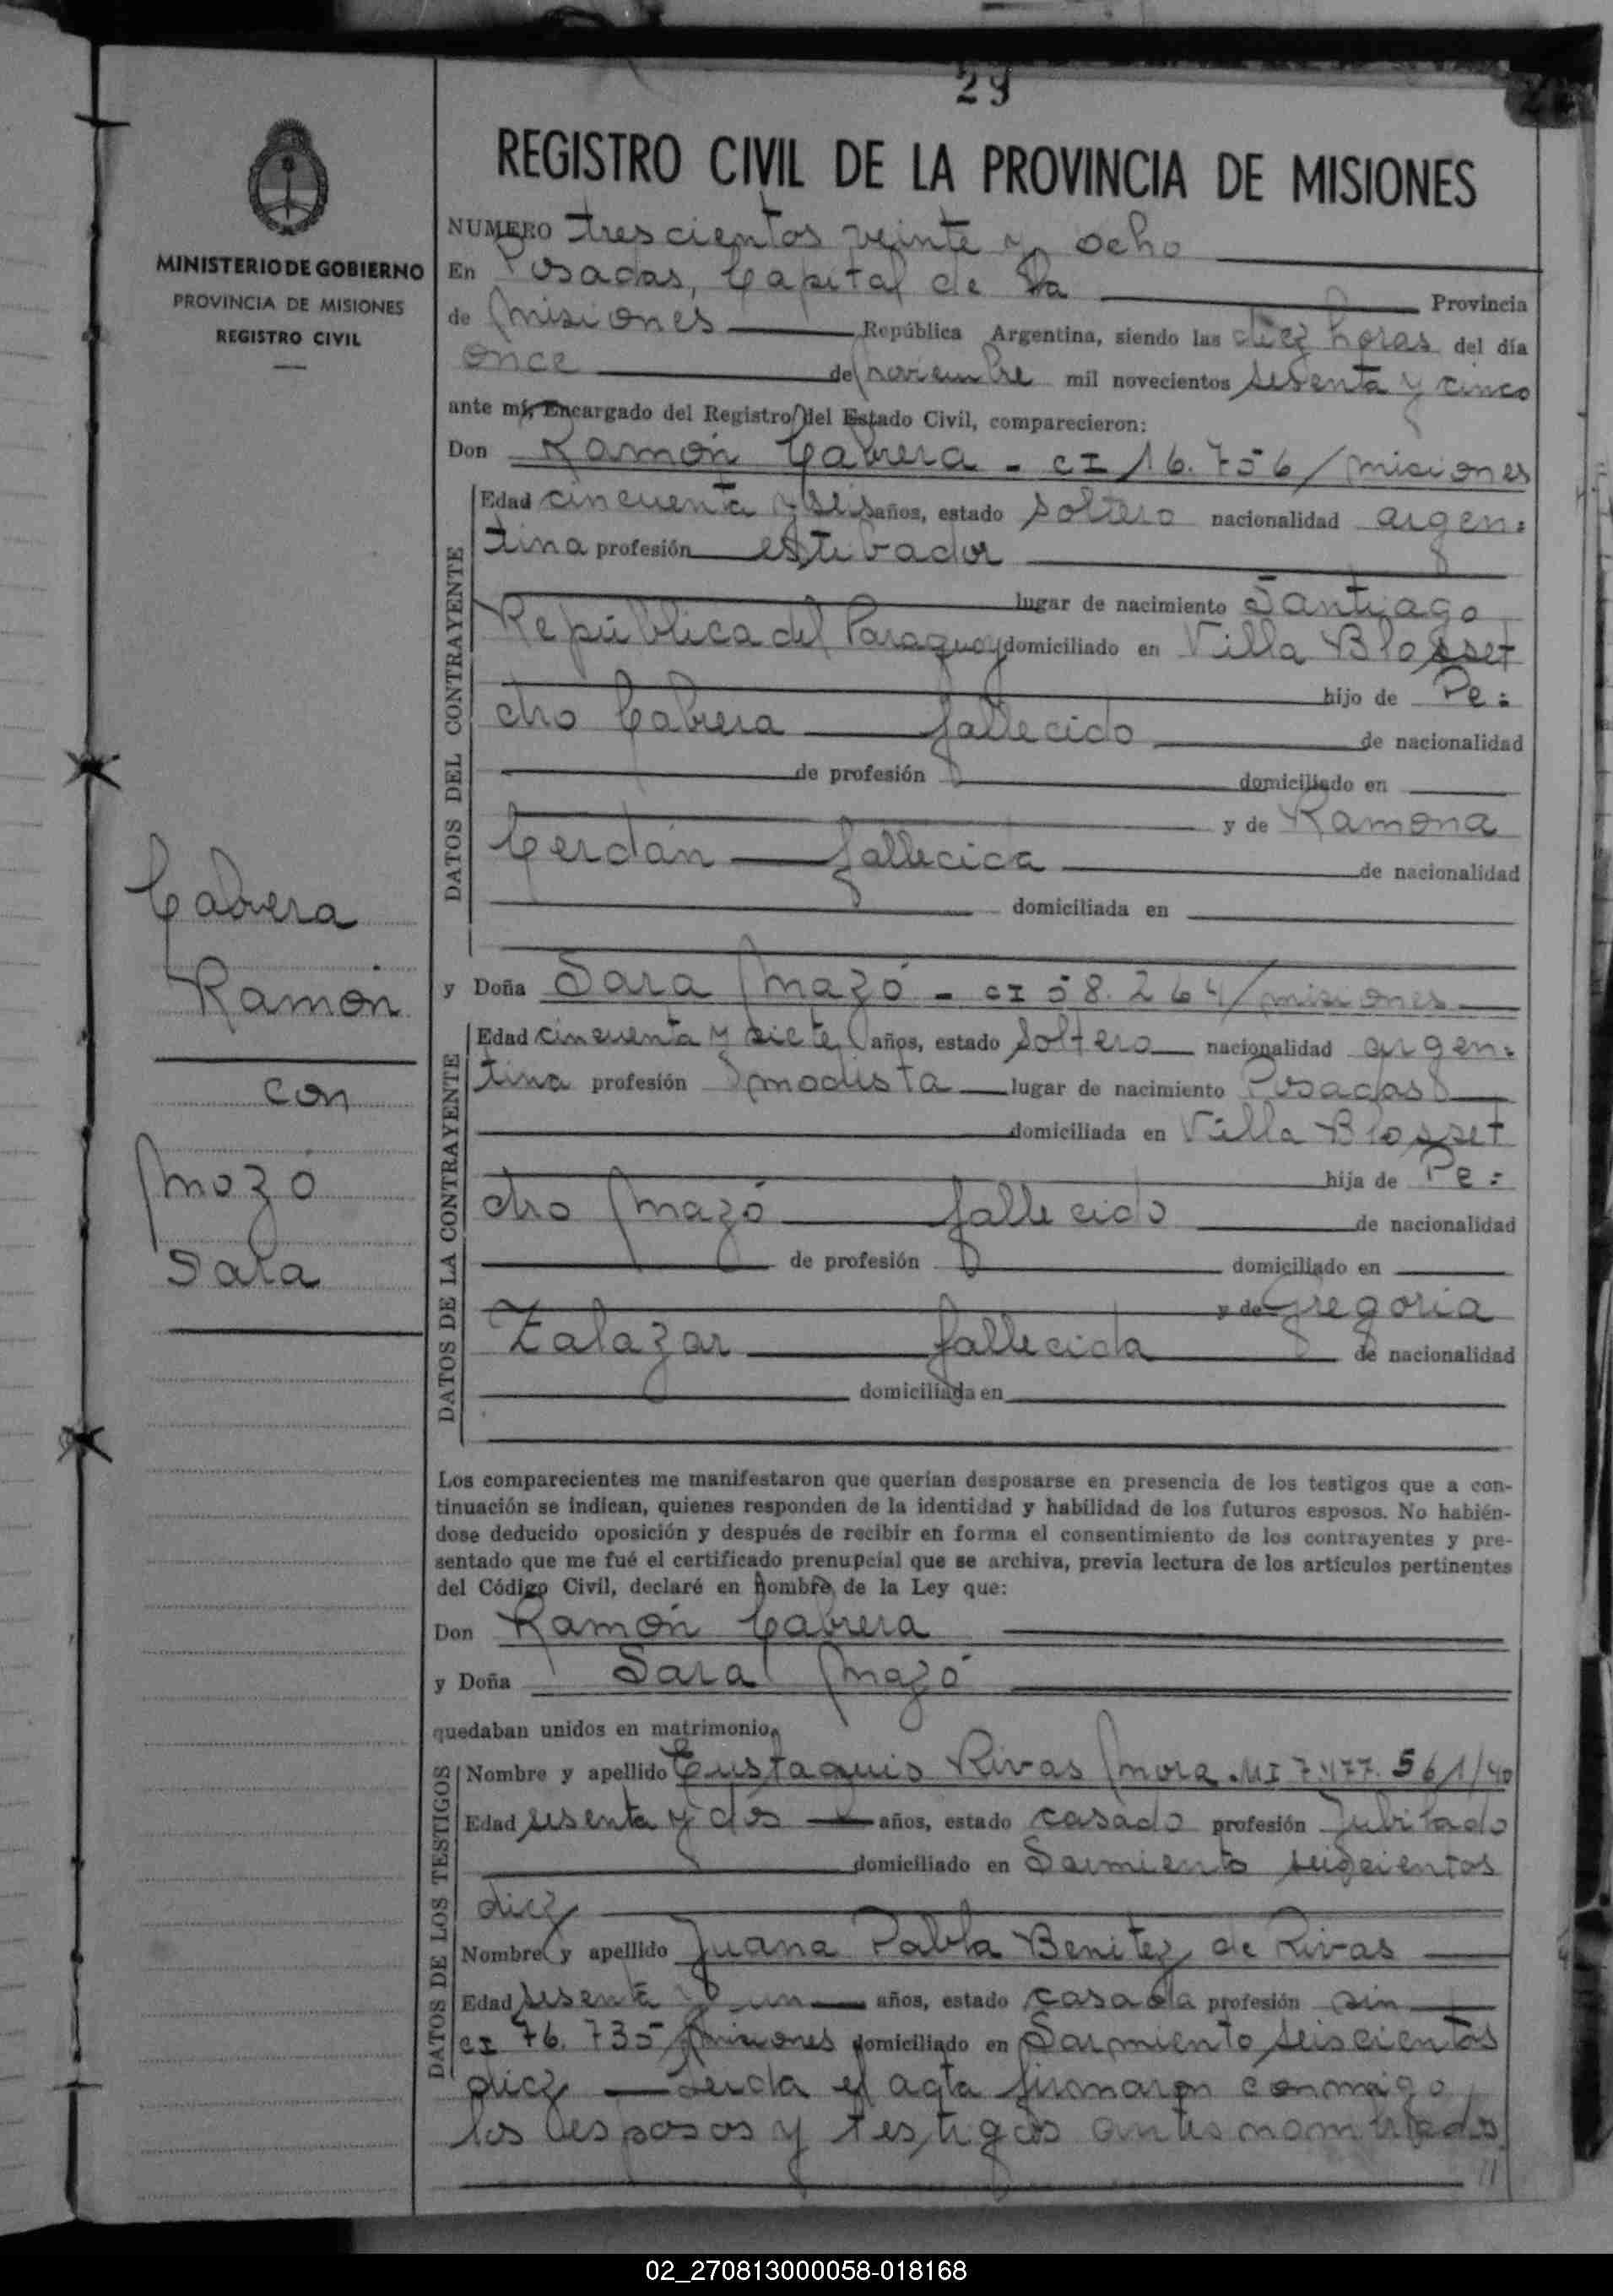 29
REGISTRO CIVIL DE LA PROVINCIA DE MISIONES
MINISTERIO DE GOBIERNO
PROVINCIA DE MISIONES
REGISTRO CIVIL
NUMERO trescientos veinte y ocho
En Posadas, Capital de la Provincia
de Misiones República Argentina, siendo las diez horas del día
once de noviembre mil novecientos sesenta y cinco
ante mí, Encargado del Registro del Estado Civil, comparecieron:
Don Ramón Cabrera - CI 16.756/Misiones
DATOS DEL CONTRAYENTE
Edad cincuenta y seis años, estado soltero nacionalidad argen=
tina profesión estibador
lugar de nacimiento Santiago
República del Paraguay domiciliado en Villa Blosset
hijo de Pe=
dro Cabrera fallecido de nacionalidad
de profesión domiciliado en
y de Ramona
Cerdán fallecida de nacionalidad
domiciliada en
Cabrera
Ramón
con
Mozó
Sara
y Doña Sara Mazó - CI 58.264/Misiones
DATOS DE LA CONTRAYENTE
Edad cincuenta y siete años, estado soltera nacionalidad argen=
tina profesión modista lugar de nacimiento Posadas
domiciliada en Villa Blosset
hija de Pe=
dro Mazó fallecido de nacionalidad
de profesión domiciliado en
y de Gregoria
Zalazar fallecida de nacionalidad
domiciliada en
Los comparecientes me manifestaron que querían desposarse en presencia de los testigos que a con-
tinuación se indican, quienes responden de la identidad y habilidad de los futuros esposos. No habién-
dose deducido oposición y después de recibir en forma el consentimiento de los contrayentes y pre-
sentado que me fué el certificado prenupcial que se archiva, previa lectura de los artículos pertinentes
del Código Civil, declaré en nombre de la Ley que:
Don Ramón Cabrera
y Doña Sara Mazó
quedaban unidos en matrimonio.
DATOS DE LOS TESTIGOS
Nombre y apellido Eustaquio Rivas Mora. MI 7.477.561/40
Edad sesenta y dos años, estado casado profesión Jubilado
domiciliado en Sarmiento seiscientos
diez
Nombre y apellido Juana Pabla Benitez de Rivas
Edad sesenta y un años, estado casada profesión sin
CI 76.735/Misiones domiciliado en Sarmiento seiscientos
diez Leida el acta firmaron conmigo
los esposos y testigos antes nombrados
//
02_270813000058-018168